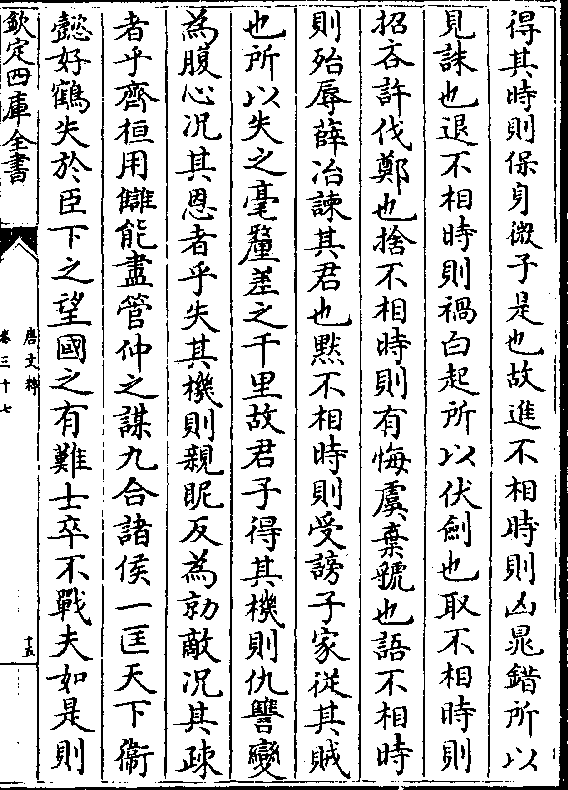 得其時則保身微子是也故進不相時則凶鼂錯所以
見誅也退不相時則禍白起所以伏劍也取不相時則
招吝許伐鄭也捨不相時則有悔虞棄虢也語不相時
則殆辱薛冶諫其君也黙不相時則受謗子家從其賊
也所以失之毫釐差之千里故君子得其機則仇讐變
為腹心况其恩者乎失其機則親眤反為勍敵况其疎
者乎齊桓用讎能盡管仲之謀九合諸侯一匡天下衞
懿好鶴失於臣下之望國之有難士卒不戰夫如是則
欽定四庫全書
唐文粹
卷三十七
十五